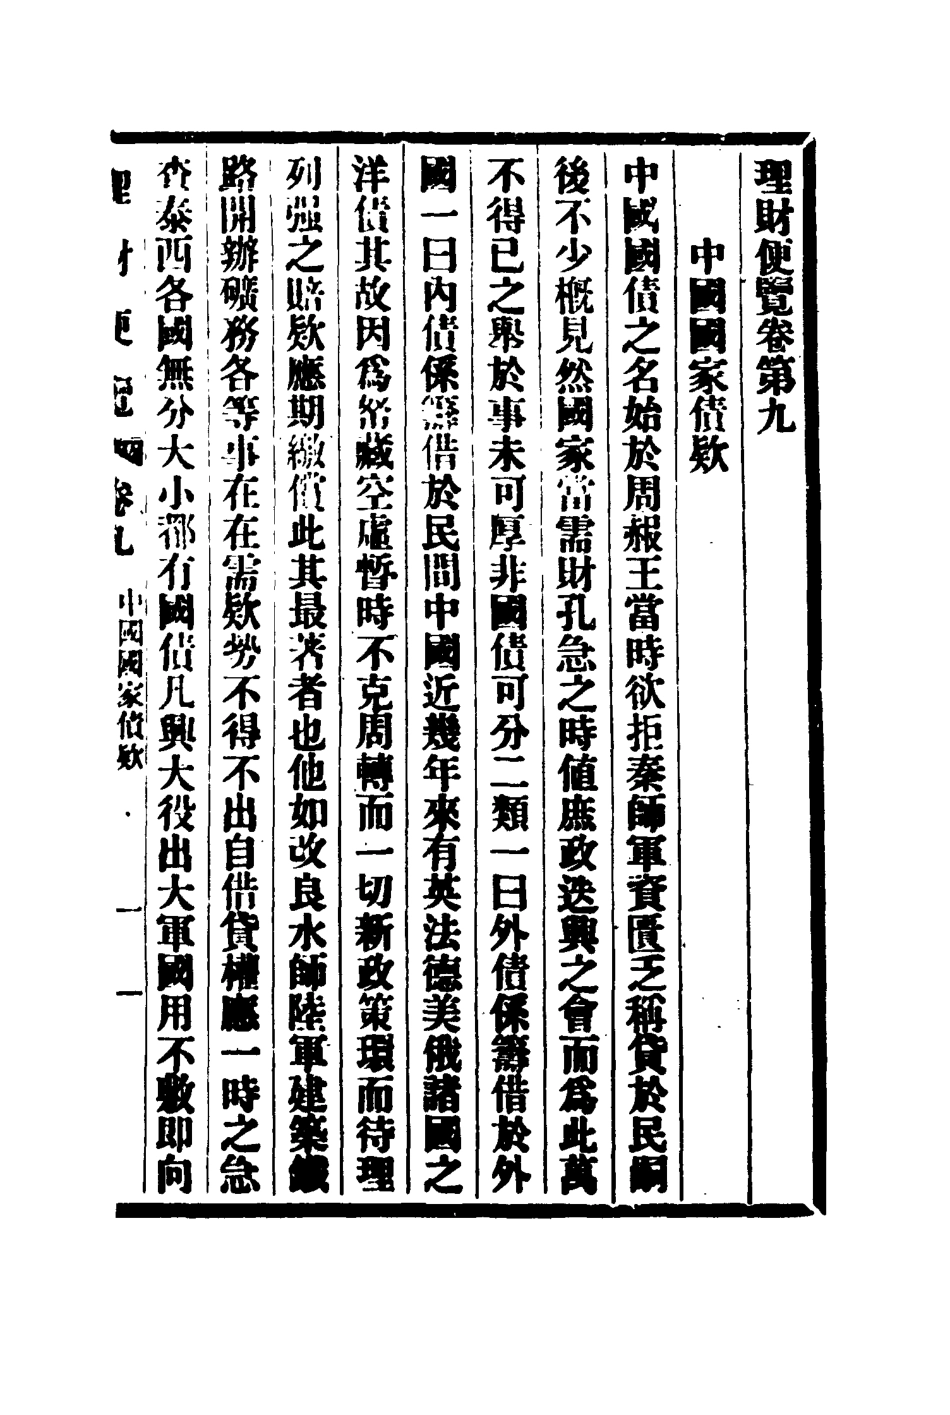 理財便覽卷第九
中國國家債欵
中國國債之名始於周赧王當時欲拒秦師軍資匱乏稱貸於民嗣
後不少概見然國家當需財孔急之時値庶政迭興之會而爲此萬
不得已之舉於事未可厚非國債可分二類一曰外債係籌借於外
國一曰內債係籌借於民間中國近幾年來有英法德美俄諸國之
洋債其故因爲帑藏空虛暫時不克周轉而一切新政策環而待理
列强之賠欵應期繳償此其最著者也他如改良水師陸軍建築鐵
路開辦礦務各等事在在需欵勢不得不出自借貸權應一時之急
查泰西各國無分大小都有國債凡興大役出大軍國用不敷即向
理財便覽 卷九 中國國家債欵 一 一